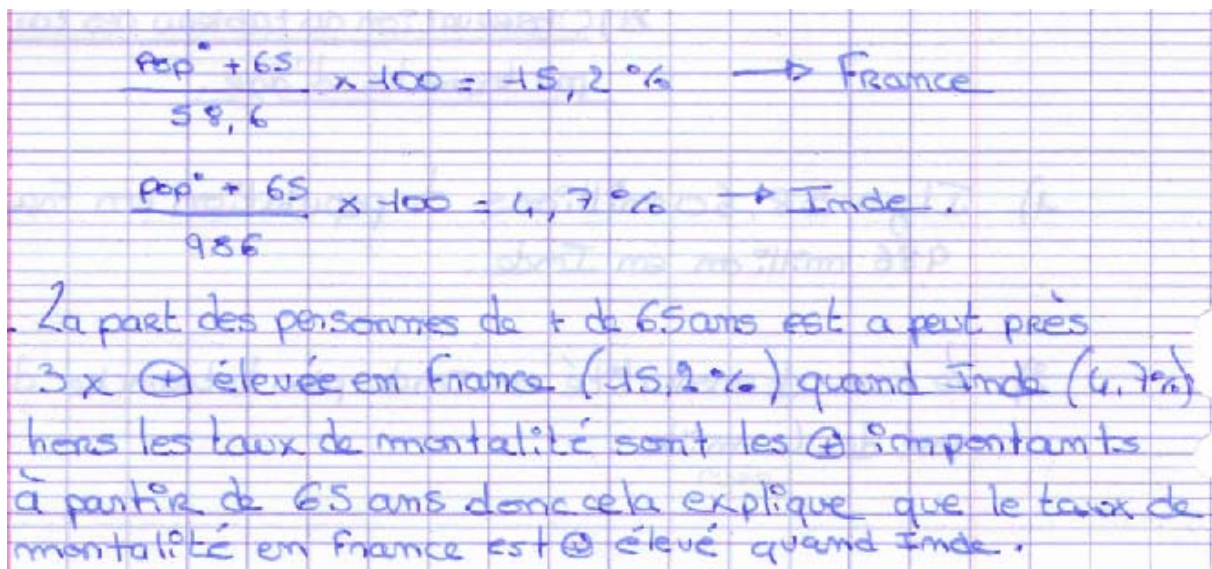 pop° + 65 / 58,6 x 100 = 15,2 % → France
pop° + 65 / 986 x 100 = 4,7 % → Inde.
. La part des personnes de + de 65 ans est a peut près
3 x ⊕ élevée en France (15,2%) quand Inde (4,7%)
hors les taux de mortalité sont les ⊕ importants
à partir de 65 ans donc cela explique que le taux de
mortalité en France est ⊕ élevé quand Inde.